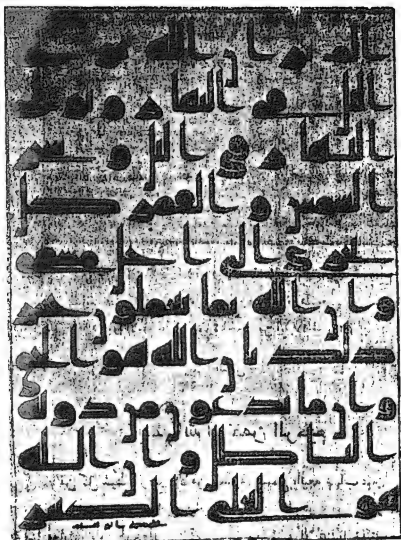 الم تر ان الله يولج
اليل في النهار ويولج
النهار في اليل وسخر
الشمس والقمر كل
يجري الى اجل مسمى
وان الله بما تعملون خبير
ذلك بان الله هو الحق
وان ما يدعون من دونه
البطل وان الله
هو العلي الكبير